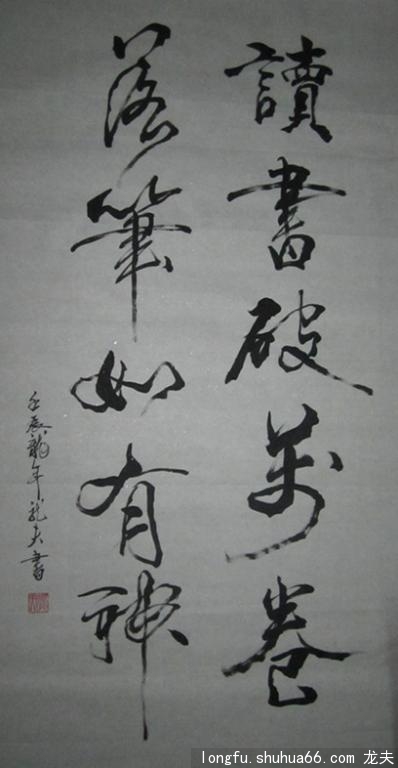 讀書破萬卷
落筆如有神
壬辰龍年龍夫書
longfu.shuhua66.com 龙夫